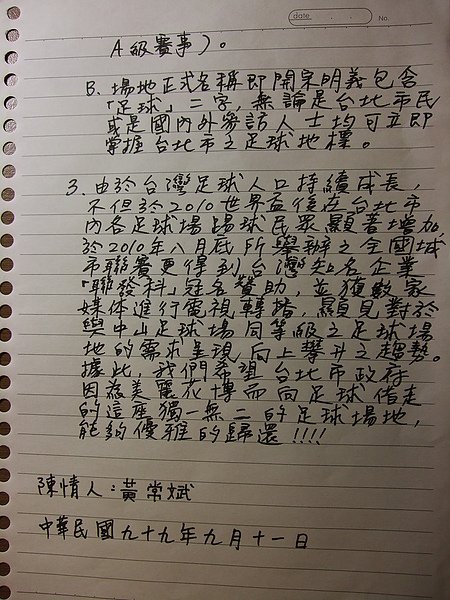 date
No.
A級賽事）。
B. 場地正式名稱即開宗明義包含
「足球」二字，無論是台北市民
或是國內外參訪人士均可立即
掌握台北市之足球地標。
3. 由於台灣足球人口持續成長，
不但於2010世界盃後在台北市
內各足球場踢球民眾顯著增加，
於2010年八月底所舉辦之全國城
市聯賽更得到台灣知名企業
「聯發科」冠名贊助，並獲數家
媒体進行電視轉播，顯見對於
與中山足球場同等級之足球場
地的需求呈現向上攀升之趨勢。
據此，我們希望台北市政府
因為美麗花博而向足球借走
的這座獨一無二的足球場地，
能夠優雅的歸還!!!!
陳情人：黃常斌
中華民國九十九年九月十一日